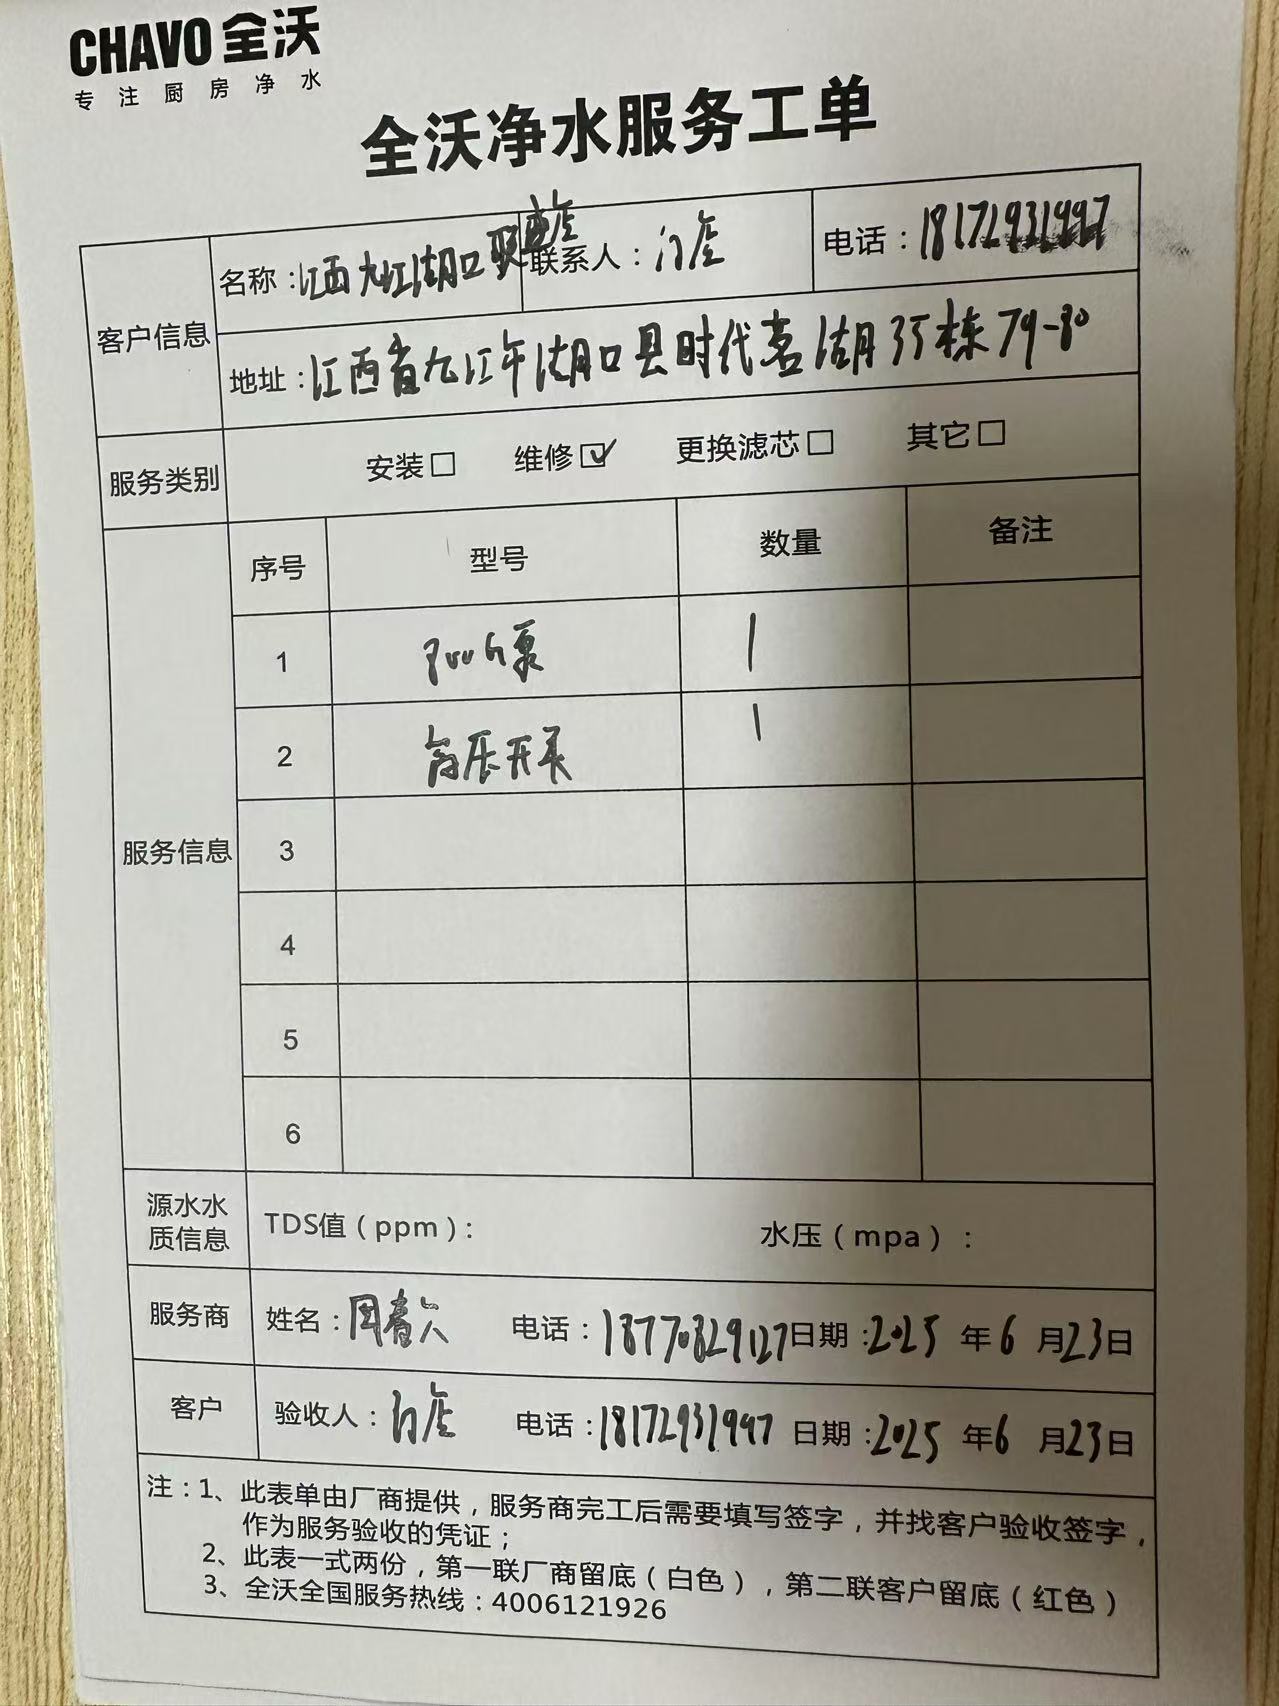 CHAVO 全沃
专注厨房净水
全沃净水服务工单
客户信息
名称：江西九江湖口联盛店 联系人：门店 电话：18172931997
地址：江西省九江市湖口县时代茗湖35栋79-80
服务类别 安装□ 维修☑ 更换滤芯□ 其它□
服务信息
序号 型号 数量 备注
1 800G泵 1
2 高压开关 1
3
4
5
6
源水水质信息 TDS值（ppm）： 水压（mpa）：
服务商 姓名：周青 电话：18770829127 日期：2025年6月23日
客户 验收人：门店 电话：18172931997 日期：2025年6月23日
注：1、此表单由厂商提供，服务商完工后需要填写签字，并找客户验收签字，
作为服务验收的凭证；
2、此表一式两份，第一联厂商留底（白色），第二联客户留底（红色）
3、全沃全国服务热线：4006121926